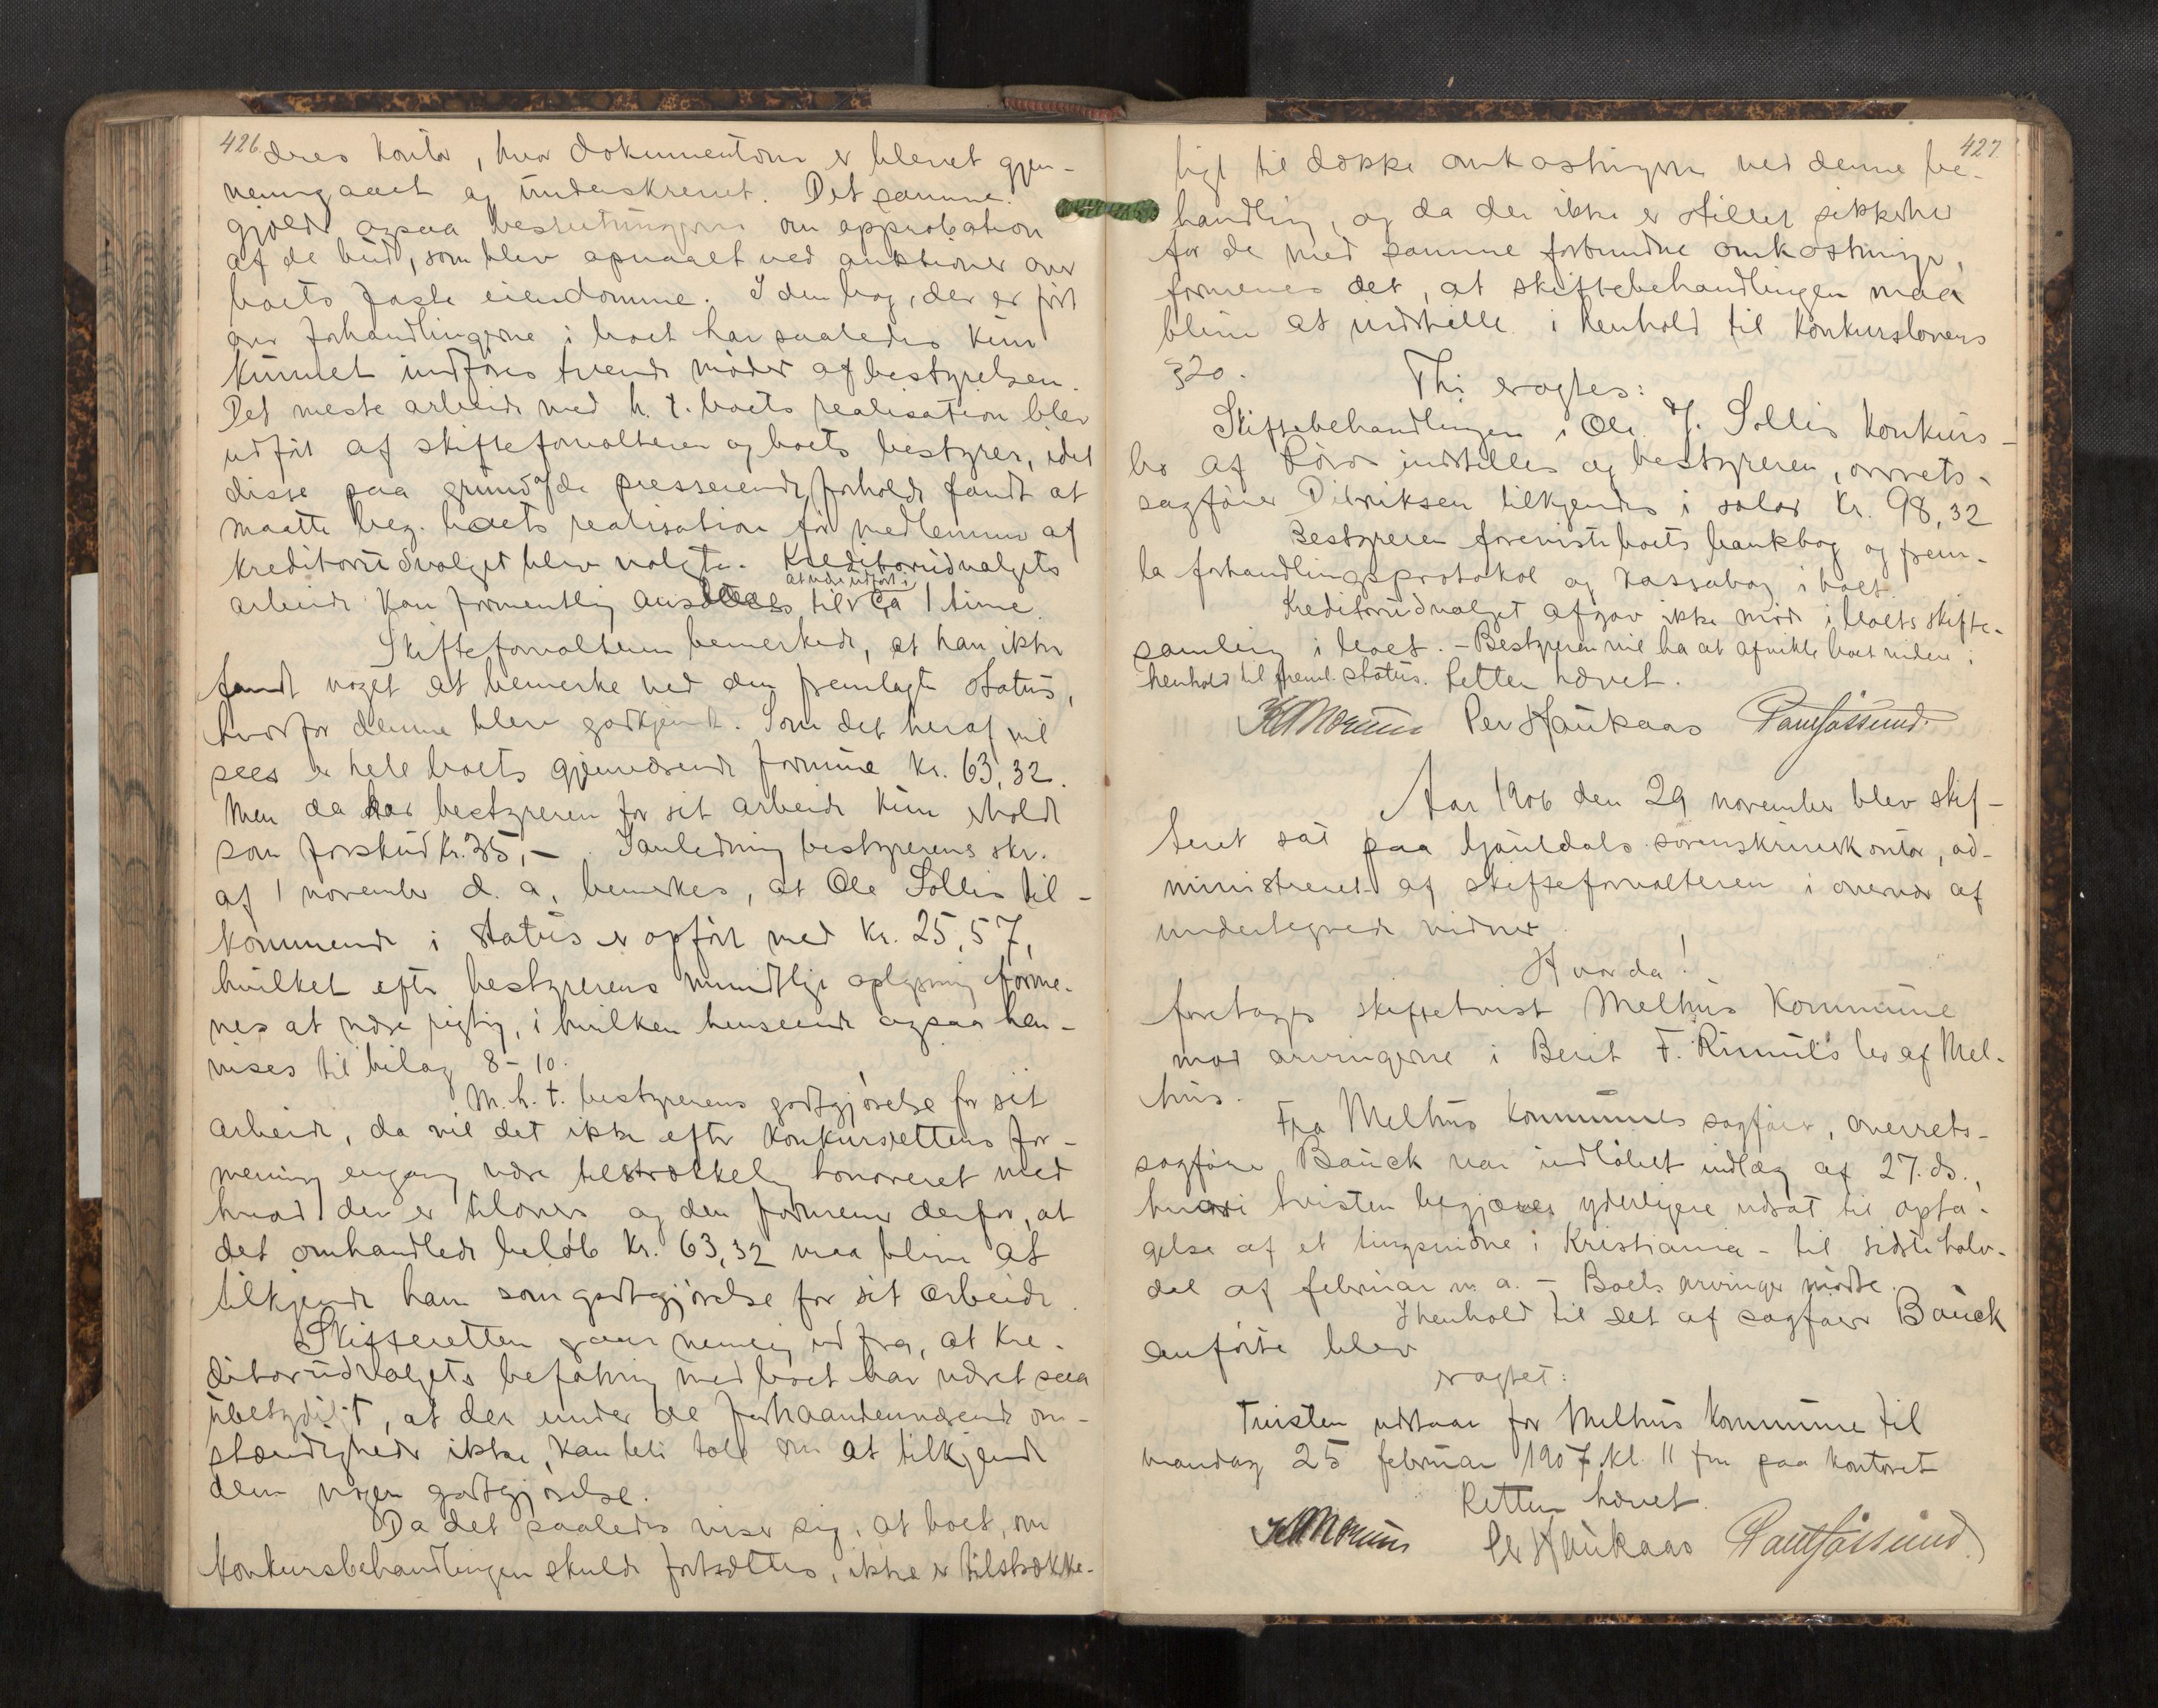 426
deres kontor, hvor dokumenterne er blevet gjen-
nemgaaet og underskrevet. Det samme
gjælder ogsaa beslutningerne om approbation
af de bud, som blev opnaaet ved auktioner over
boets faste eiendomme. I den bog, der er ført
over forhandlingerne i boet har saaledes kun
kunnet indføres tvende møder af bestyrelsen.
Det meste arbeide med h. t. boets realisation blev
udført af skifteforvalteren og boets bestyrer, idet
disse paa grund af de presserende forholde fandt at
maatte beg. boets realisation før medlemmer af
kreditorudvalget blev valgte. Kreditorudvalgets
at være udført i
arbeide kan formentlig ansættes til ca 1 time.
Skifteforvalteren bemerkede, at han ikke
fandt noget at bemerke ved den fremlagte status,
hvorfor denne blev godkjendt. Som det heraf vil
sees er hele boets gjenværende formue kr. 63,32.
Men da har bestyreren for sit arbeide kun erholdt
som forskud kr. 35,- . I anledning bestyrerens skr.
af 1 november d. a. bemerkes, at Ole Sollis til-
kommende i status er opført med kr. 25,57,
hvilket efter bestyrerens mundtlige oplysning forme-
nes at være rigtig, i hvilken henseende ogsaa hen-
vises til bilag 8-10.
M. h. t. bestyrerens godtgjørelse for sit
arbeide, da vil det ikke efter konkursrettens for-
mening engang være tilstrækkelig honoreret med
hvad der er tilovers og den formener derfor, at
det omhandlede beløb kr. 63,32 maa blive at
tilkjende ham som godtgjørelse for sit arbeide.
Skifteretten gaar nemlig ud fra, at kre-
ditorudvalgets befatning med boet har været saa
ubetydeligt, at der under de forhaandenværende om-
stændigheder ikke kan bli tale om at tilkjende
dem nogen godtgjørelse.
Da det saaledes viser sig, at boet, om
konkursbehandlingen skulde fortsættes, ikke er tilstrække-
427
ligt til dække omkostningerne ved denne be-
handling, og da der ikke er stillet sikkerhed
for de med samme forbundne omkostninger,
formenes det, at skiftebehandlingen maa
blive at indstille i henhold til konkurslovens
320.
Thi eragtes:
Skiftebehandlingen i Ole J. Sollis konkurs-
bo af Røros indstilles og bestyreren, overrets-
sagfører Ditriksen tilkjendes i salær kr. 98,32
Bestyreren foreviste boets bankbog og frem-
la forhandlingsprotokol og kassabog i boet.
Kreditorudvalget afgav ikke møde i boets skifte-
samling i boet. - Bestyreren vil ha at afvikle boet videre i
henhold til freml. status. Retten hævet.
Per Haukaas
Aar 1906 den 29 november blev skif-
teret sat paa Guldals sorenskriverkontor, ad-
ministreret af skifteforvalteren i overvær af
undertegnede vidner.
Hvorda!
foretages skiftetvist Melhus kommune
mod arvingerne i Berit F. Rimuls bo af Mel-
hus.
Fra Melhus kommunes sagfører, overrets-
sagfører Bauck var indløbet indlæg af 27. ds.,
hvori tvisten begjæres yderligere udsat til opta-
gelse af et tingsvidne i Kristiania - til sidste halv-
del af februar n. a. - Boets arvinger mødte.
I henhold til det af sagfører Bauck
anførte blev
eragtet:
Tvisten udstaar for Melhus kommune til
mandag 25 februar 1907 kl. 11 fm paa kontoret
Retten hævet.
Per Haukaas